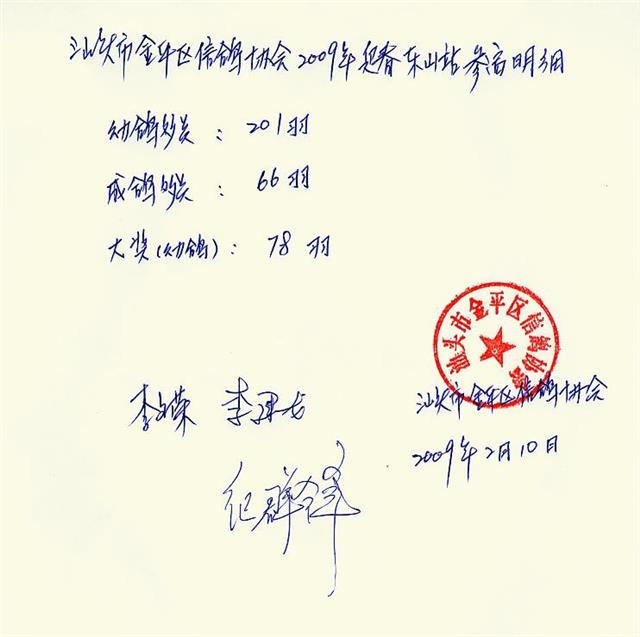 汕头市金平区信鸽协会2009年迎春东山站参赛明细
幼鸽组：201羽
成鸽组：66羽
大奖(幼鸽)：78羽
汕头市金平区信鸽协会
李 荣 李
纪群
汕头市金平区信鸽协会
2009年2月10日